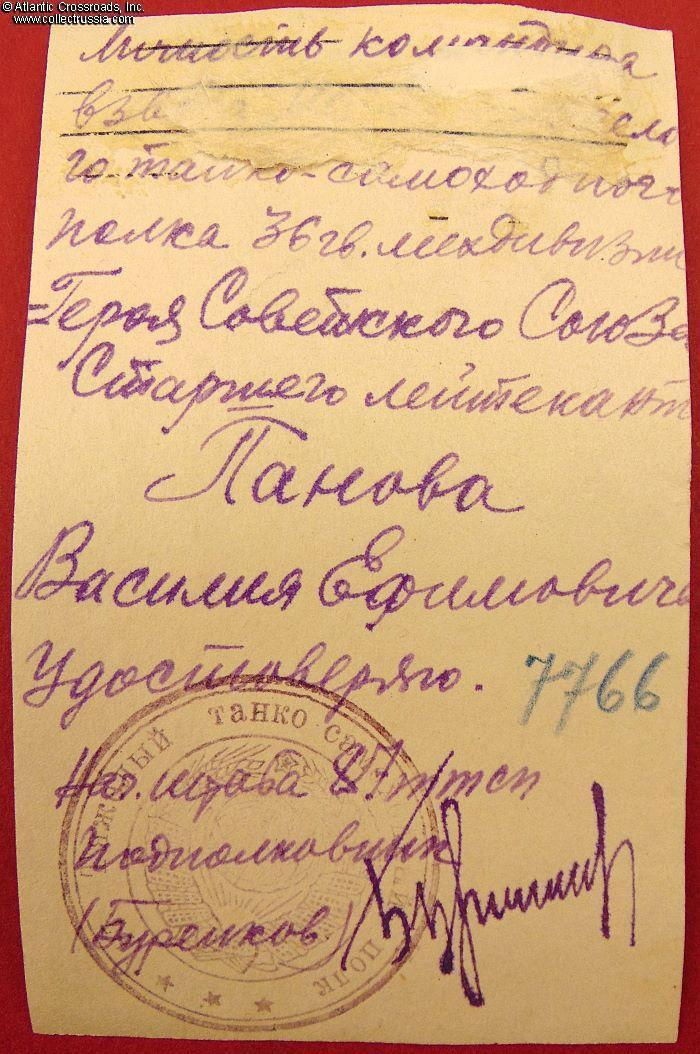 © Atlantic Crossroads, Inc.
www.collectrussia.com
Личность командира
взв
го танко-самоходного
полка 36 гв. мехдивизии
Героя Советского Союза
Старшего лейтенант
Панова
Василия Ефимовича
Удостоверяю.
7766
танко сам
полк
Нач. штаба 87 ттсп
подполковник
(Буренков)